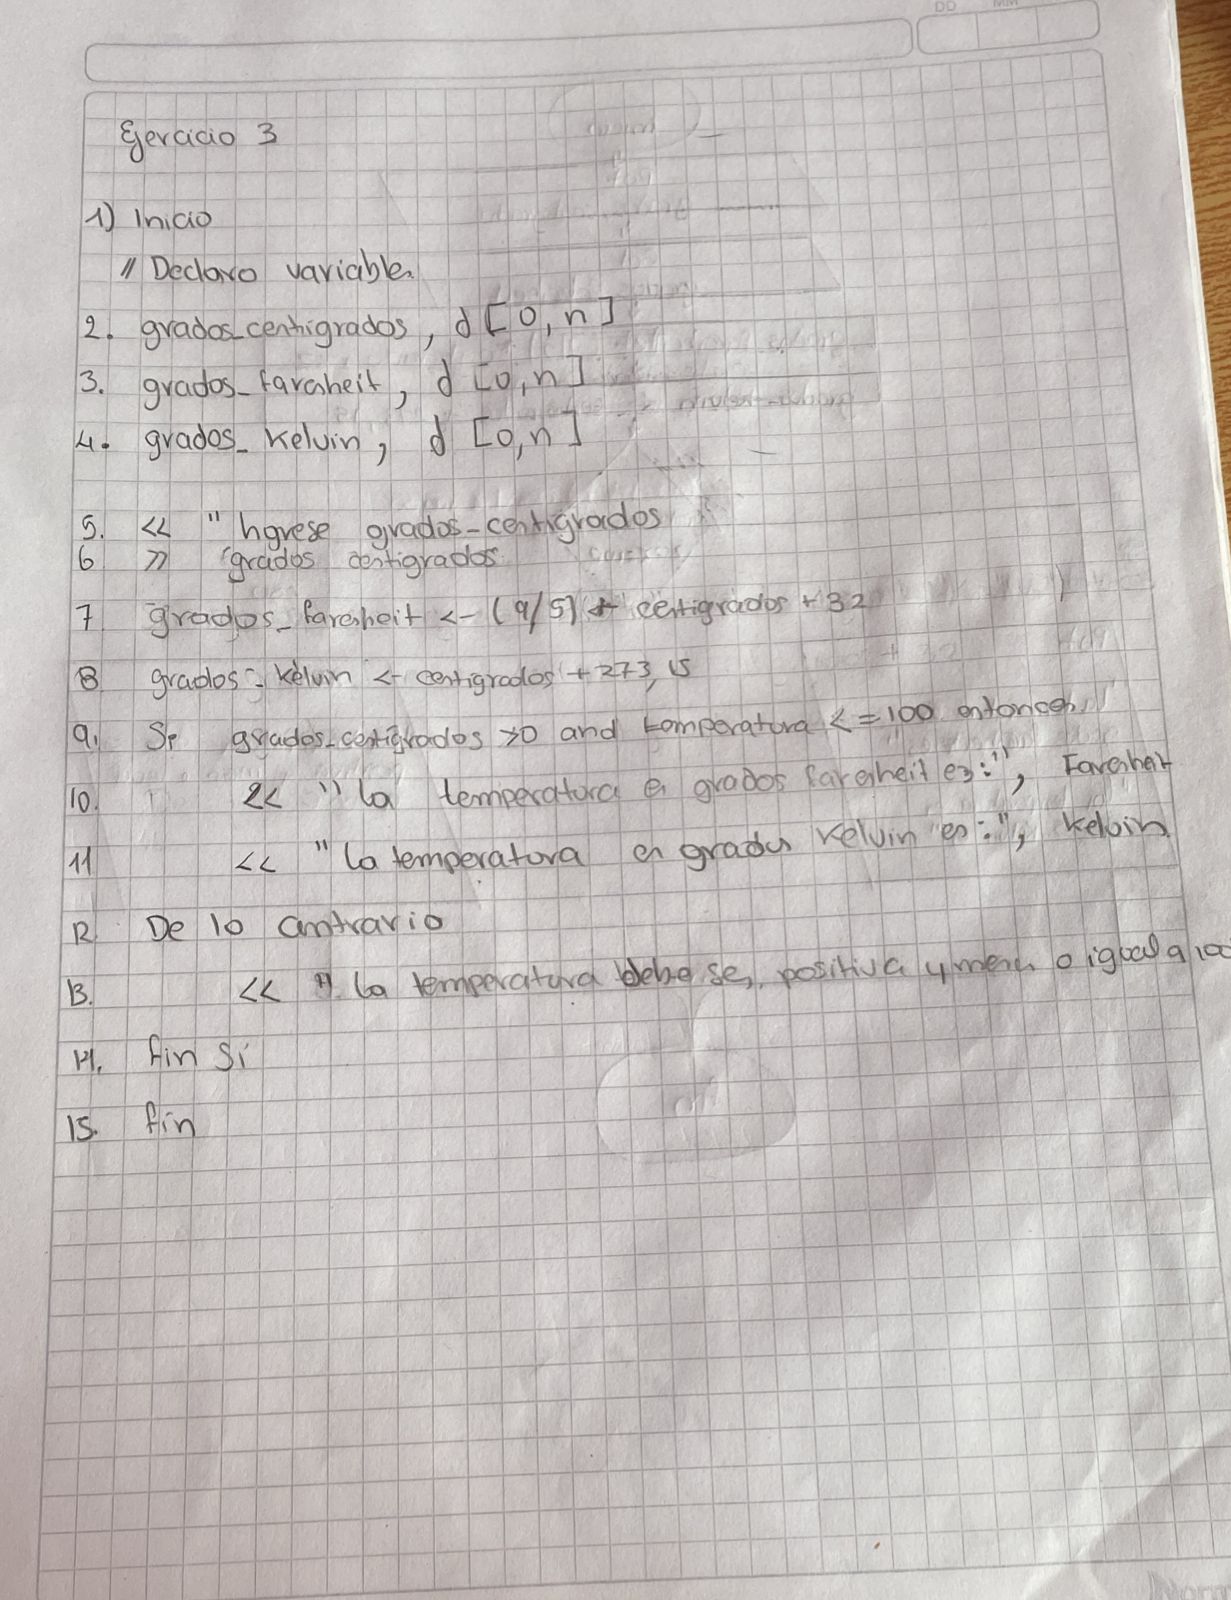 DD MM
Ejercicio 3
1) Inicio
// Declaro variable.
2. grados_centigrados, d [0, n]
3. grados_farenheit, d [0, n]
4. grados_Kelvin, d [0, n]
5. << " Ingrese grados-centigrados
6 >> grados centigrados
7 grados_farenheit <- (9/5) * centigrados + 32
8 grados_Kelvin <- centigrados + 273,15
9. Si grados_centigrados >0 and temperatura <=100 entonces
10. << " la temperatura en grados farenheit es:", Farenheit
11 << " la temperatura en grados Kelvin es:", Kelvin
12. De lo contrario
13. << " la temperatura debe ser positiva y menor o igual a 100
14. fin Si
15. fin